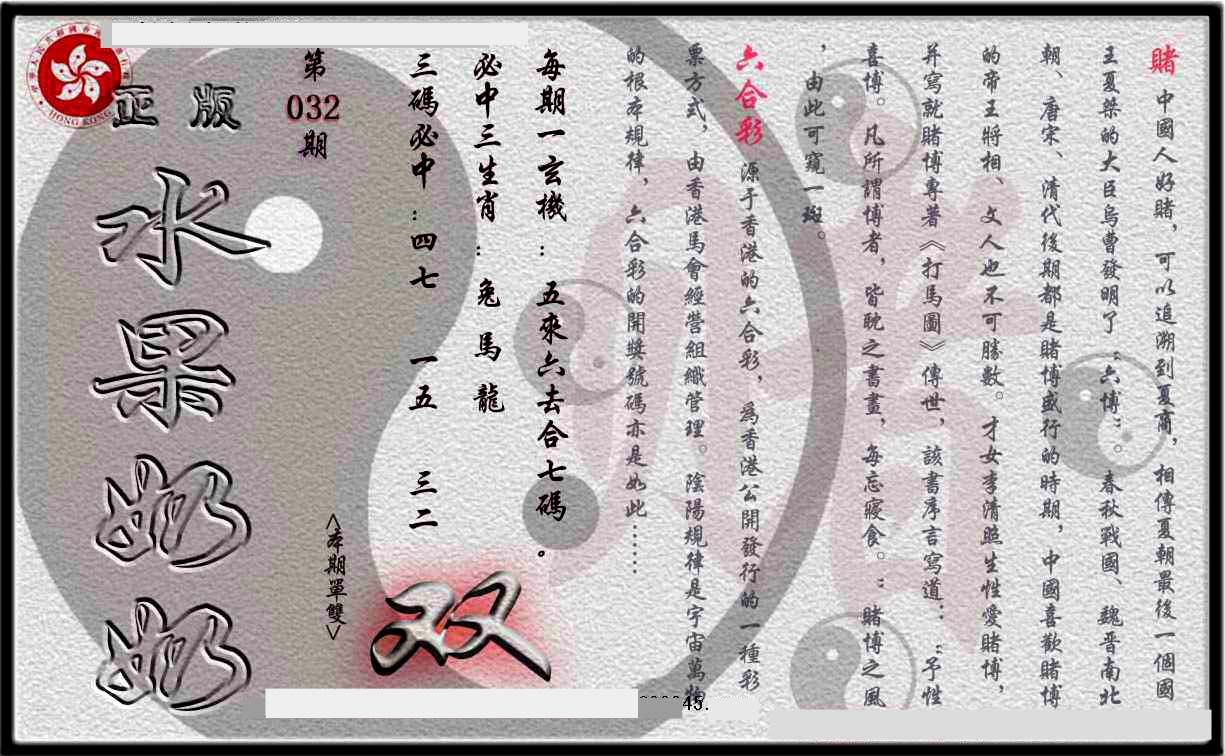 賭 中國人好賭，可以追溯到夏商，相傳夏朝最後一個國
王夏桀的大臣烏曹發明了“六博”。春秋戰國、魏晋南北
朝、唐宋、清代後期都是賭博盛行的時期，中國喜歡賭博
的帝王將相、文人也不可勝數。才女李清照生性愛賭博，
并寫就賭博專著《打馬圖》傳世，該書序言寫道：“予性
喜博。凡所謂博者，皆耽之書畫，每忘寢食。”賭博之風
，由此可窺一斑。
六合彩 源于香港的六合彩，爲香港公開發行的一種彩
票方式，由香港馬會經營組織管理。陰陽規律是宇宙萬物
的根本規律，六合彩的開獎號碼亦是如此……
每期一玄機：五來六去合七碼。
必中三生肖：兔 馬 龍
三碼必中：四七 一五 三二
双
<本期單雙>
第
032
期
正版
水果奶奶
HONG KONG
45.